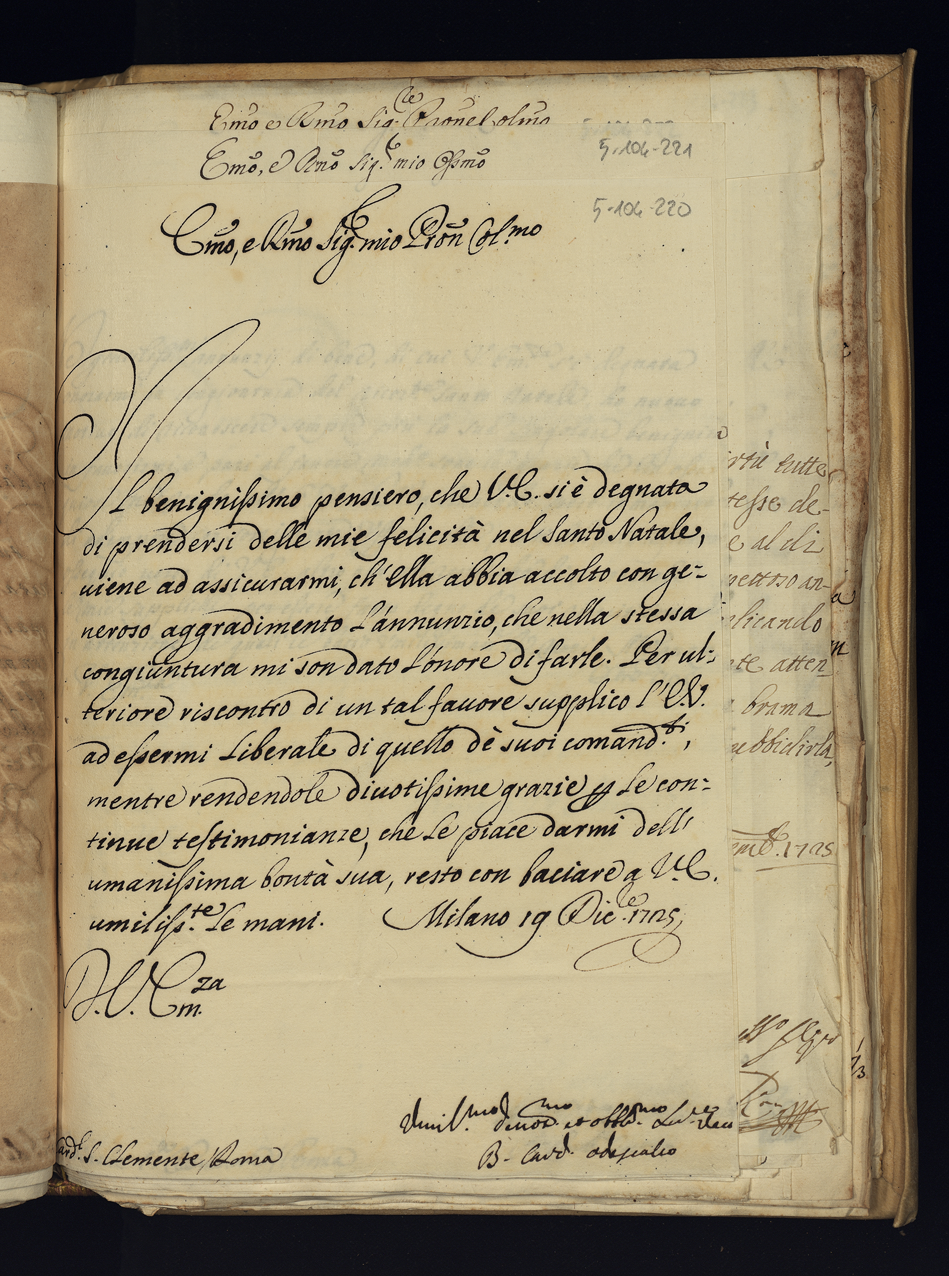 Emo e Rmo Sig.re Pronel olmo
Emo, e Rmo Sig.re mio Ossmo
5-104-221
5-104-220
Emo, e Rmo Sig.re mio Pron Col.mo
Il benignissimo pensiero, che V.E. si è degnata
di prendersi delle mie felicità nel Santo Natale,
viene ad assicurarmi, ch'Ella abbia accolto con ge-
neroso aggradimento l'annunzio, che nella stessa
congiuntura mi son dato l'onore di farle. Per ul-
teriore riscontro di un tal favore supplico l'E.V.
ad essermi liberale di quello de' suoi comand.ti,
mentre rendendole divotissime grazie per le con-
tinue testimonianze, che le piace darmi dell'
umanissima bontà sua, resto con baciare a V.E.
umiliss.te le mani. Milano 19 Dic.re 1725
D.V.Em.za
Umil.mo devot.mo et obblig.mo
B. Card. Odescalco
Card. S. Clemente / Roma
tutte
tesse de-
e al di
licando
te atten
brama
ubbidirla,
1725